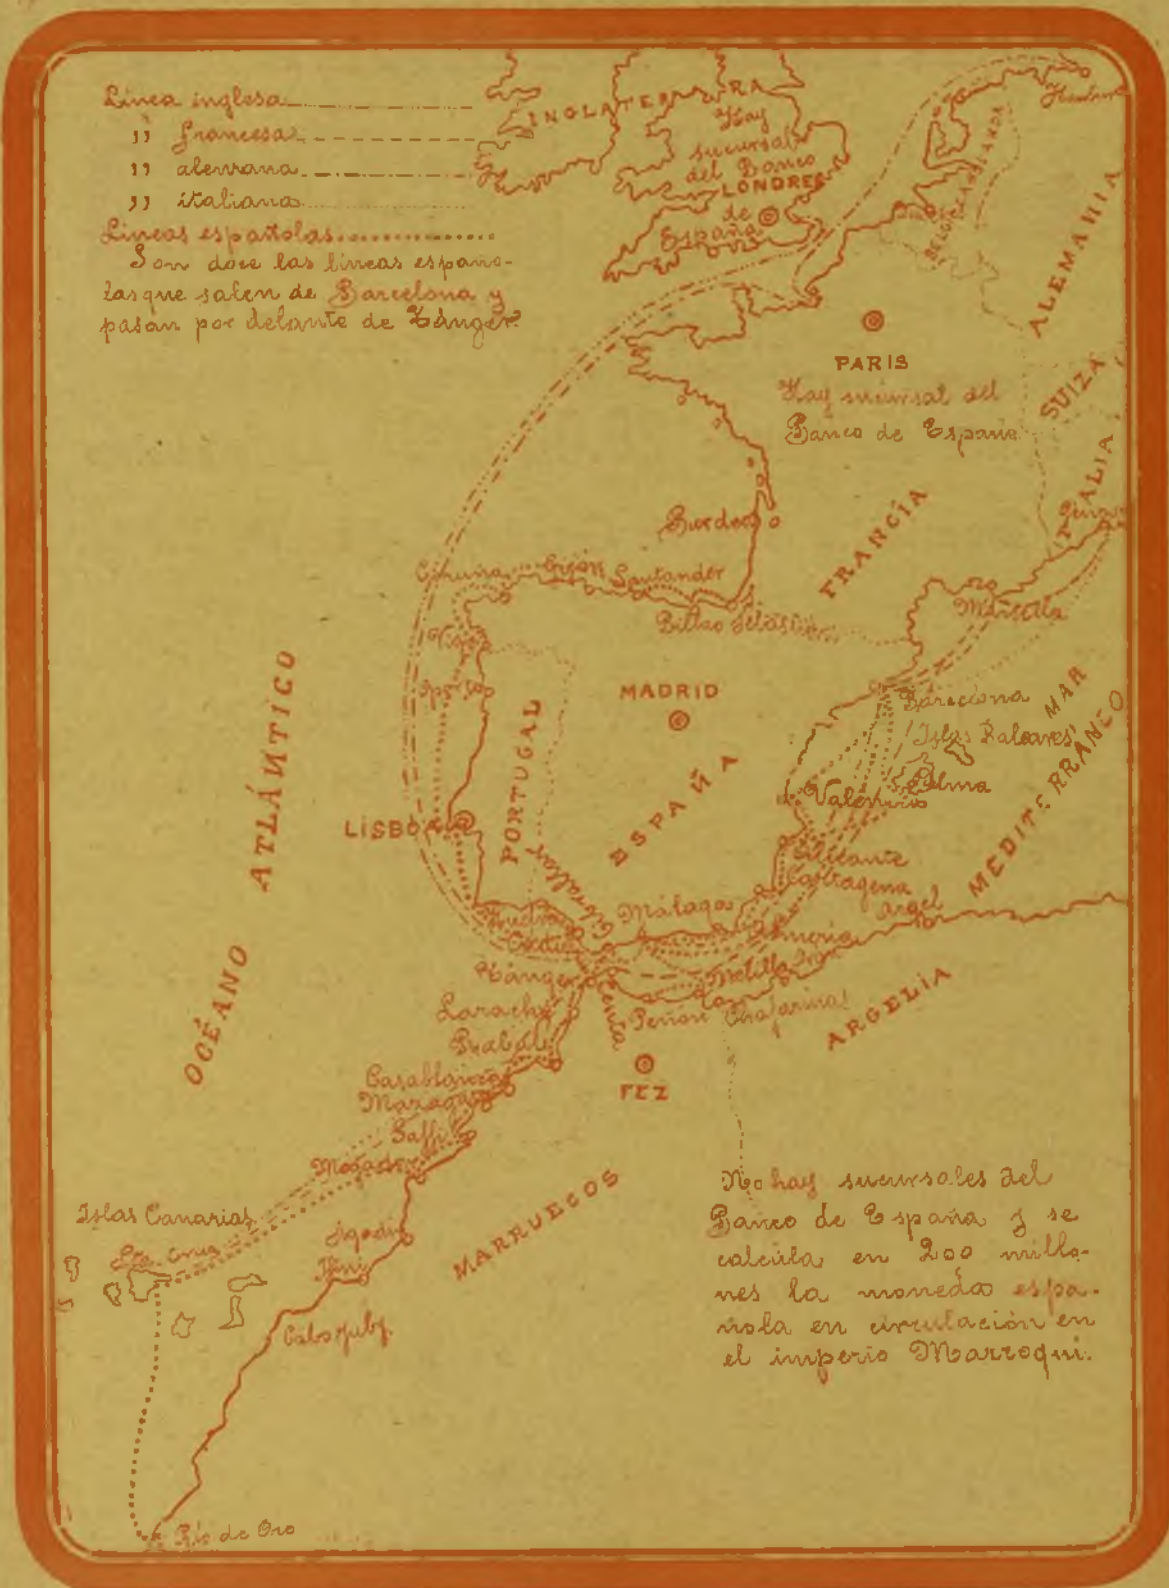 Línea inglesa
,, francesa
,, alemana
,, italiana
Líneas españolas
Son doce las líneas españo-
las que salen de Barcelona y
pasan por delante de Tánger.
INGLATERRA
Hay
sucursal
del Banco
LONDRES
de
España
BELGICA
HOLANDA
ALEMANIA
PARIS
Hay sucursal del
Banco de España
SUIZA
ITALIA
Génova
FRANCIA
Burdeos
Marsella
Coruña
Gijón
Santander
Bilbao
Sebastián
Vigo
Oporto
MADRID
Barcelona
MAR
MEDITERRANEO
Islas Baleares
Palma
Valencia
PORTUGAL
ESPAÑA
LISBOA
OCÉANO ATLÁNTICO
Alicante
Cartagena
Argel
Gibraltar
Málaga
Almeria
Huelva
Cadiz
Tánger
Ceuta
Melilla
Orán
Peñón
Chafarinas
ARGELIA
Larache
Rabat
FEZ
Casablanca
Mazagán
Saffi
Mogador
MARRUECOS
Islas Canarias
Sta. Cruz
Agadir
Ifni
Cabo Juby.
Río de Oro
No hay sucursales del
Banco de España y se
calcula en 200 millo-
nes la moneda espa-
ñola en circulación en
el imperio Marroqui.